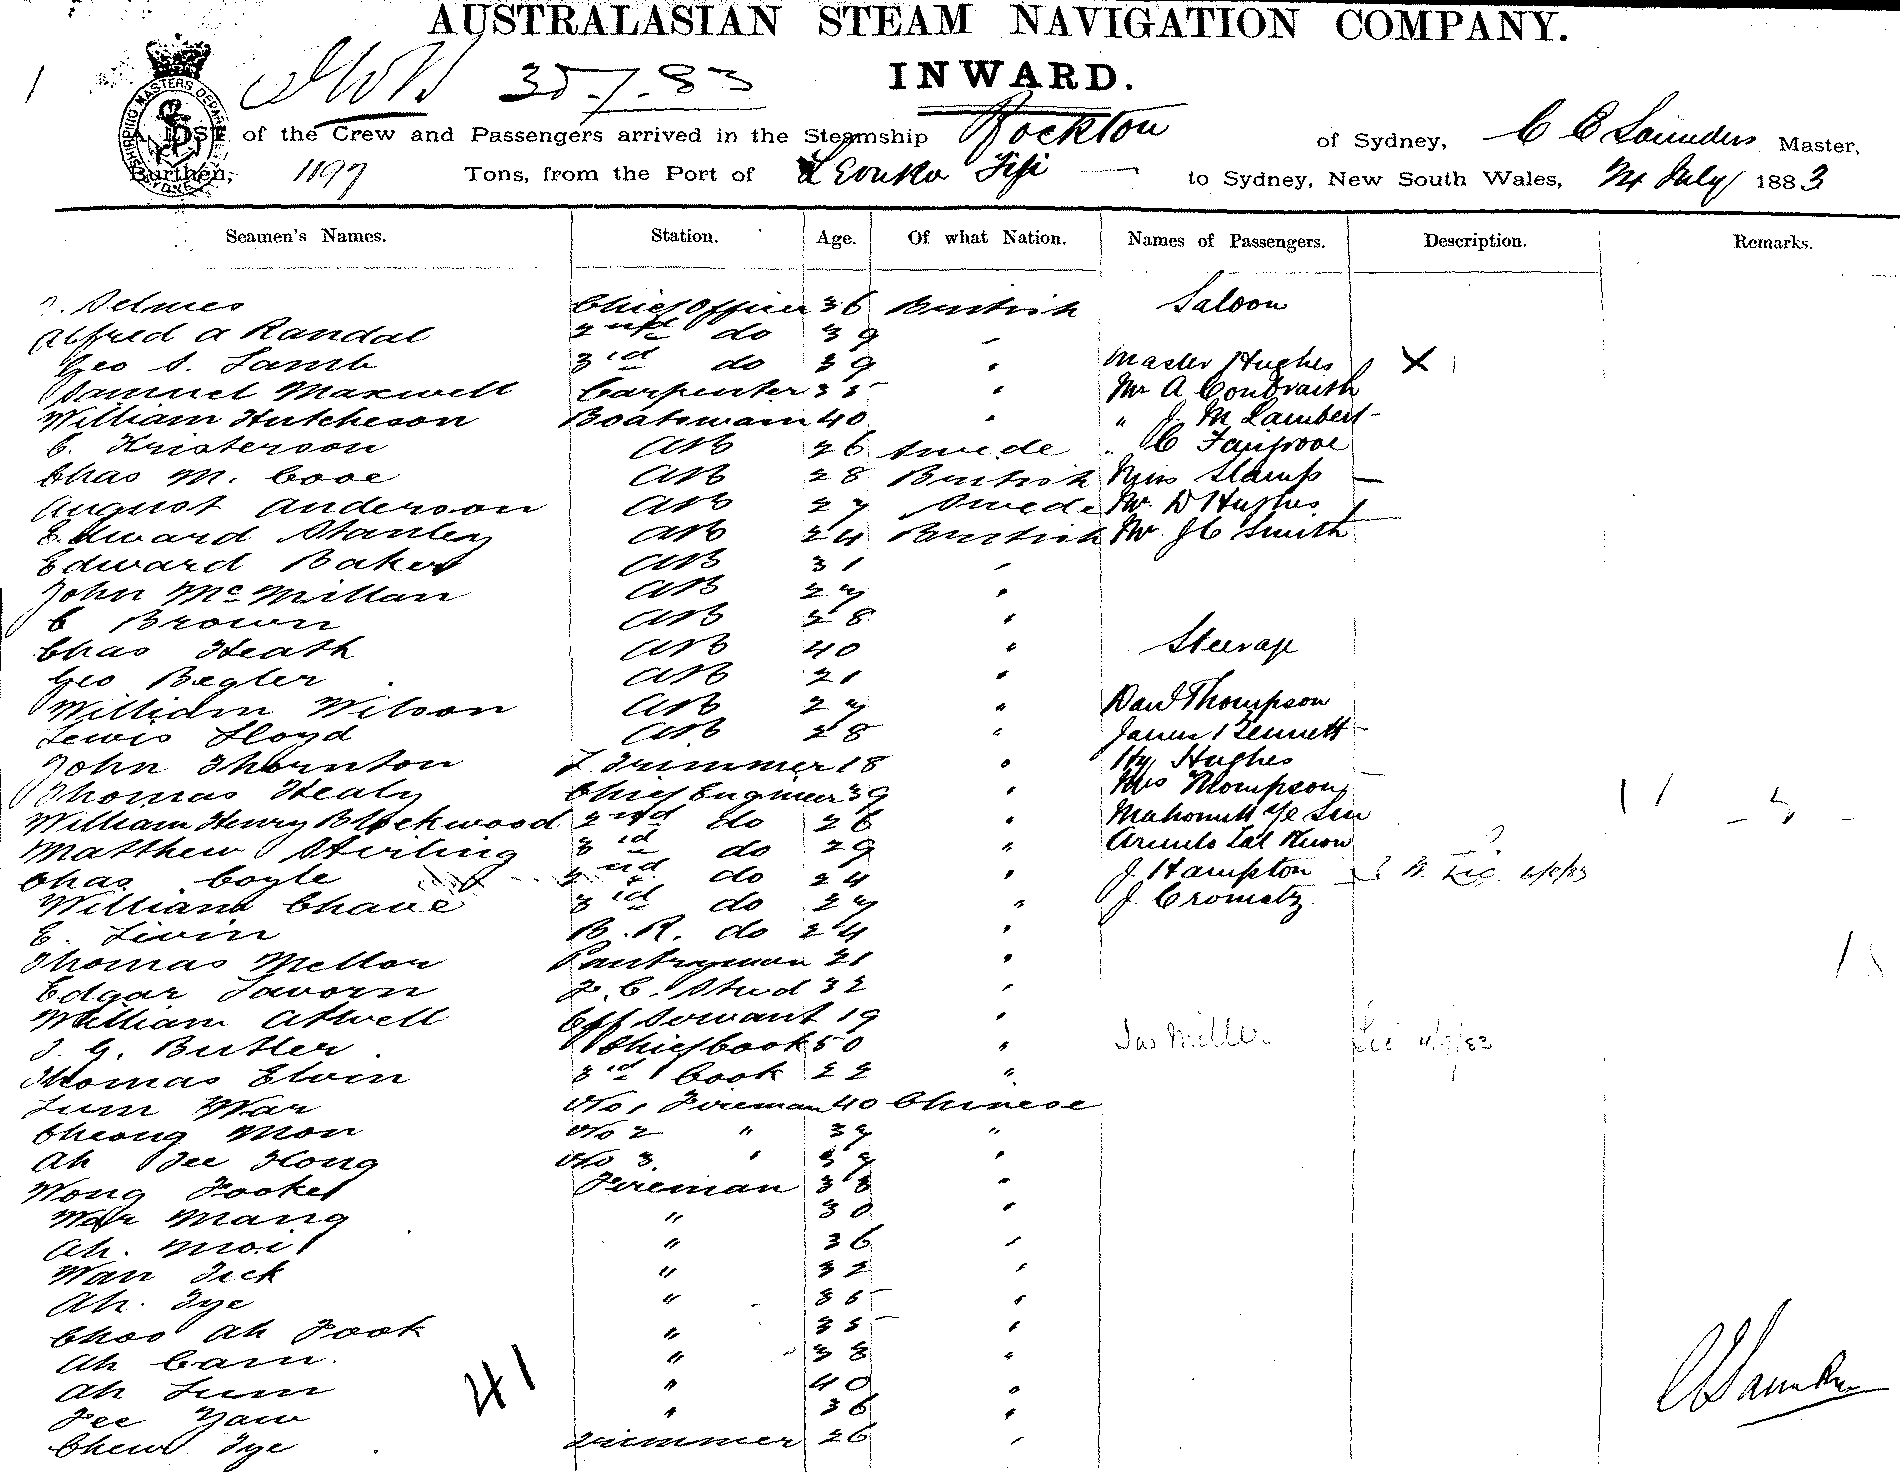 AUSTRALASIAN STEAM NAVIGATION COMPANY.
INWARD.
A LIST of the Crew and Passengers arrived in the Steamship Rockton of Sydney, C E Saunders Master,
Burthen, 1197 Tons, from the Port of Levuka Fiji to Sydney, New South Wales, 24 July 1883
Seamen's Names. Station. Age. Of what Nation. Names of Passengers. Description. Remarks.
Selmes Chief Officer 36 British Saloon
Alfred A Randal 2nd do 39 "
Geo S. Lamb 3rd do 39 " Master Hughes X
Samuel Maxwell Carpenter 35 " Mr A
William Hutcheson Boatswain 40 " " J. M Lambert
C. Kristerson AB 26 Swede " C
Chas M. Cove AB 28 British Miss Stamp
August Anderson AB 27 Swede Mr D Hughes
Edward Stanley AB 24 British Mr J C Smith
Edward Baker AB 31 "
John McMillan AB 27 "
C Brown AB 28 "
Chas Heath AB 40 " Steerage
Geo Begler AB 21 "
William Wilson AB 27 " Davd Thompson
Lewis Lloyd AB 28 " James Bennett
John Thornton Trimmer 18 " Hy Hughes
Thomas Healy Chief Engineer 39 " Mrs Thompson
William Henry Blackwood 2nd do 26 "
Matthew Stirling 3rd do 29 "
Chas Coyle 2nd do 24 " J. Hampton
William Chave 3rd do 27 " J. Cromatz
E. Livin B. R. do 24 "
Thomas Mellor Pantryman 21 "
Edgar Tavorn F. C. Stud 32 "
William Atwell Off Servant 19 "
J. G. Butler Chief Cook 50 " Jas Miller
Thomas Elvin 3rd Cook 22 "
Lum War No 1 Fireman 40 Chinese
Cheong Mon No 2 " 37 "
Ah Tee Hong No 3. " 37 "
Wong Fookey Fireman 38 "
War Mang " 30 "
Ah. Moi " 36 "
Wan Tick " 32 "
Ah. Tye " 35 "
Choo Ah Fook " 35 "
Ah Cam. " 38 "
Ah Lum " 40 "
Yaw " 36 "
Chew Tye Trimmer 26 "
41
C Saunders